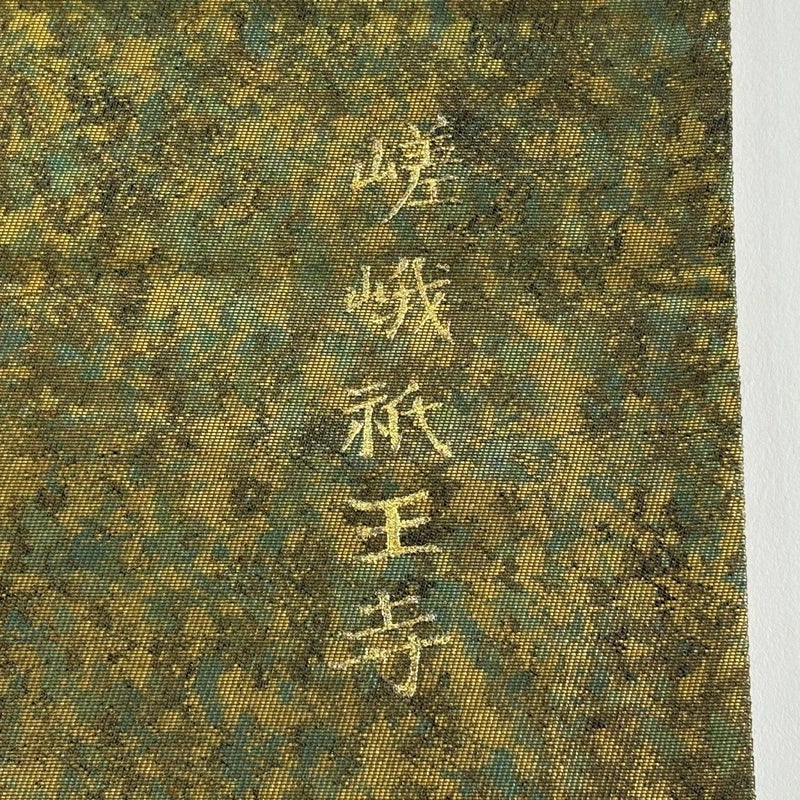 嵯峨祇王寺